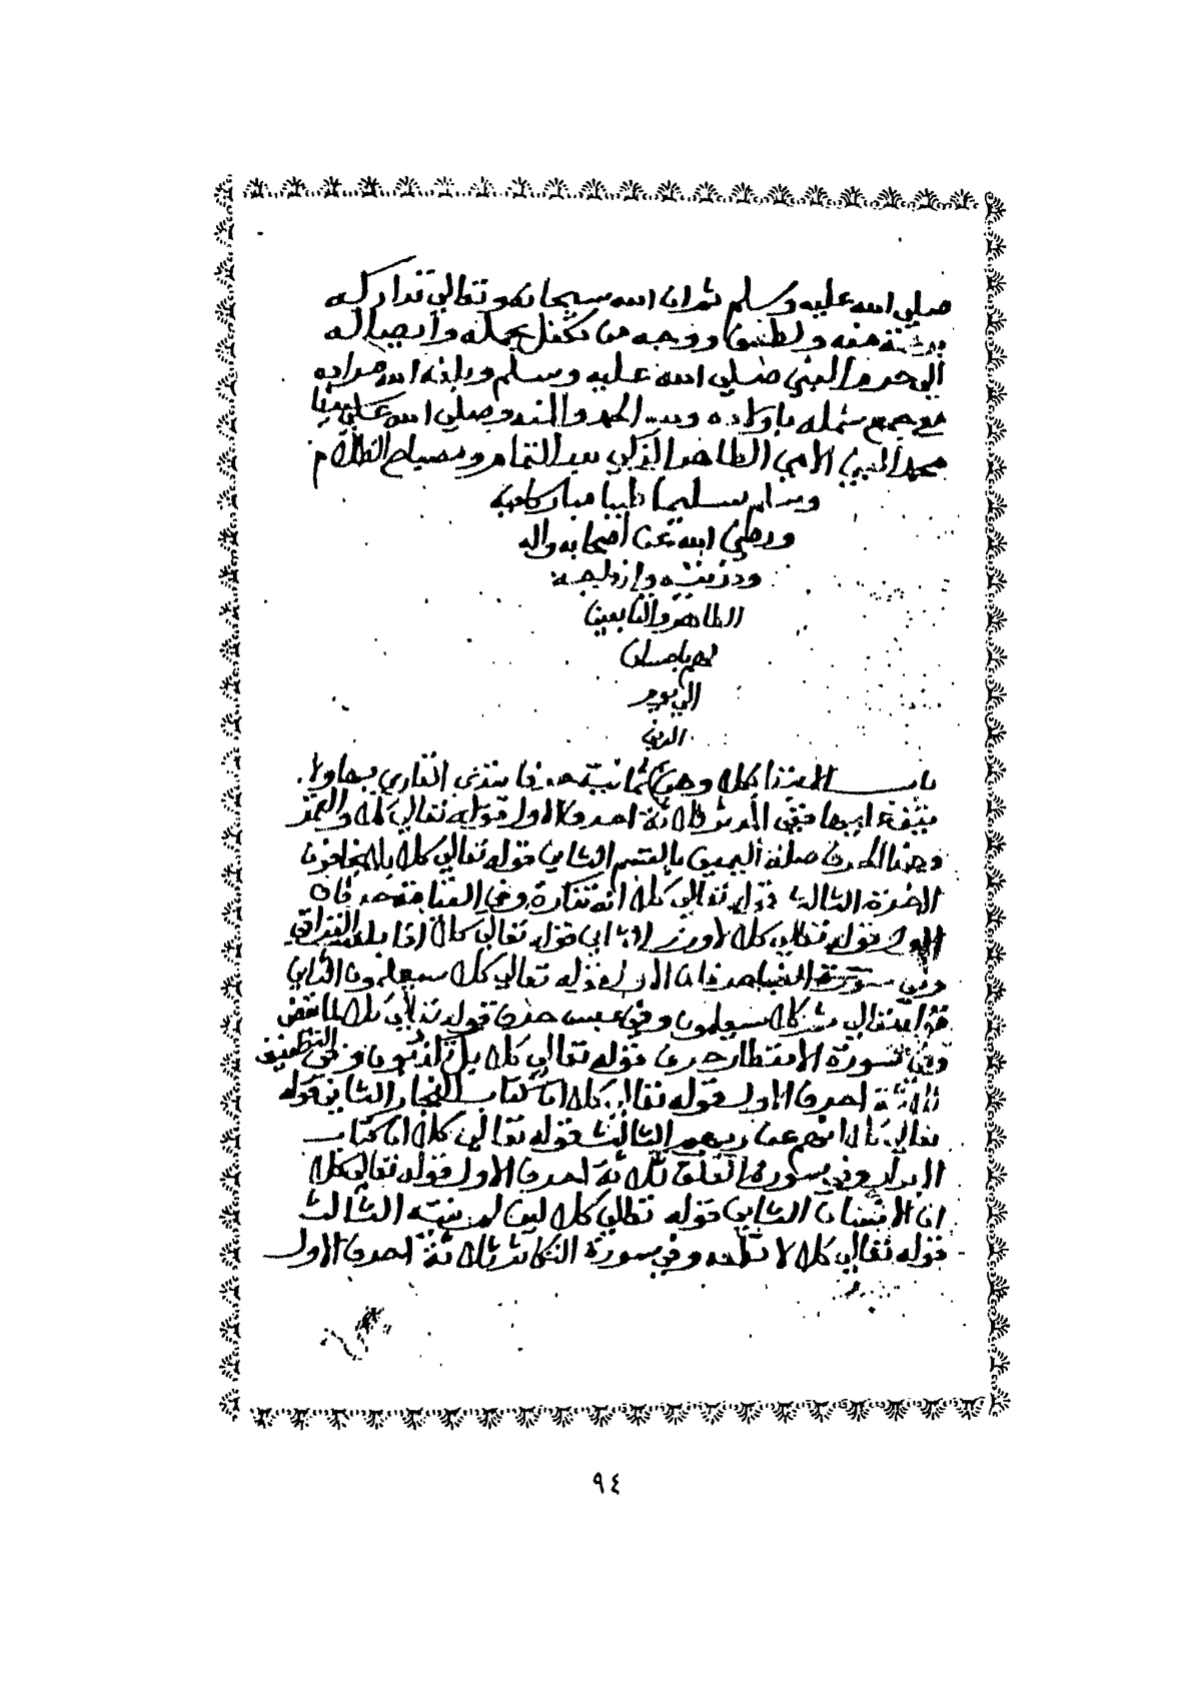 صلي الله عليه وسلم ثم ان الله سبحانه وتعالي تداركه
برحمة منه ولطف ووجه من تكفل بحمله وايصاله
الي حرم النبي صلي الله عليه وسلم وبلغه الله مراده
مع جمع شمله باولاده ولله الحمد والمنه وصلي الله علي سيدنا
محمد النبي الامي الطاهر الزكي بدر التمام ومصباح الظلام
وسلم تسليما طيبا مباركا فيه
ورضي الله عن اصحابه واله
وذريته وازواجه
الطاهرو التابعين
لهم باحسان
الي يوم
الدين
باب الابتدا بكلا وهي ثمانية يبتدي القاري بها ولا
يقف عليها ففي المدثر ثلاثة احرف الاول قوله تعالي كلا والقمر
وهذا الحرف صلة اليمين بالقسم الثاني قوله تعالي كلا بل لا يخافون
الاخرة الثالث قوله تعالي كلا انه تذكرة وفي القيامة حرفان
الاول قوله تعالي كلا لا وزر الثاني قوله تعالي كلا اذا بلغت التراقي
وفي سورة النبا حرفان الاول قوله تعالي كلا سيعلمون الثاني
قوله تعالي ثم كلا سيعلمون وفي عبس حرف قوله تعالي كلا لما يقض
وفي سورة الانفطار حرف قوله تعالي كلا بل تكذبون وفي التطفيف
ثلاثة احرف الاول قوله تعالي كلا ان كتاب الفجار الثاني قوله
تعالي كلا انهم عن ربهم الثالث قوله تعالي كلا ان كتاب
الابرار وفي سورة العلق ثلاثة احرف الاول قوله تعالي كلا
ان الانسان الثاني قوله تعالي كلا لين لم ينته الثالث
قوله تعالي كلا لا تطعه وفي سورة التكاثر ثلاثة احرف الاول
٩٤